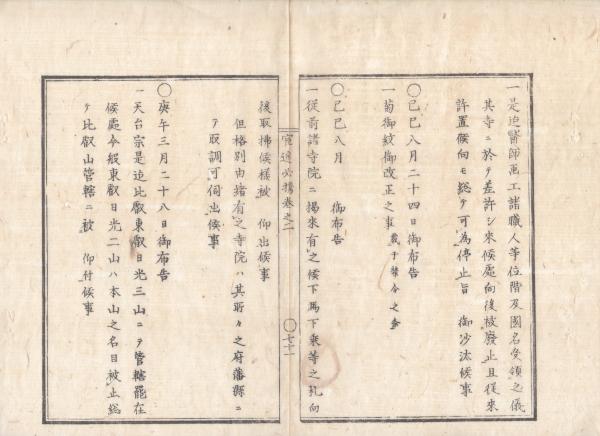 一是迄醫師画工諸職人等位階及國名受領之儀
其寺ニ於テ差許シ来候處向後被廢止且從来
許置候向モ総テ可為停止旨　御沙汰候事
〇己巳八月二十四日御布告
一菊御紋御改正之事　載于禁令之全
〇己巳八月　　御布告
一從前諸寺院ニ揚来有之候下馬下乗等之札向
寛遵必携巻之二　〇七十一
後取拂候様被　仰出候事
但格別由緒有之寺院ハ其所々之府藩縣ニ
テ取調可伺出候事
〇庚午三月二十八日御布告
一天台宗是迄比叡東叡日光三山ニテ管轄罷在
候處今般東叡日光二山ハ本山之名目被止総
テ比叡山管轄ニ被　仰付候事